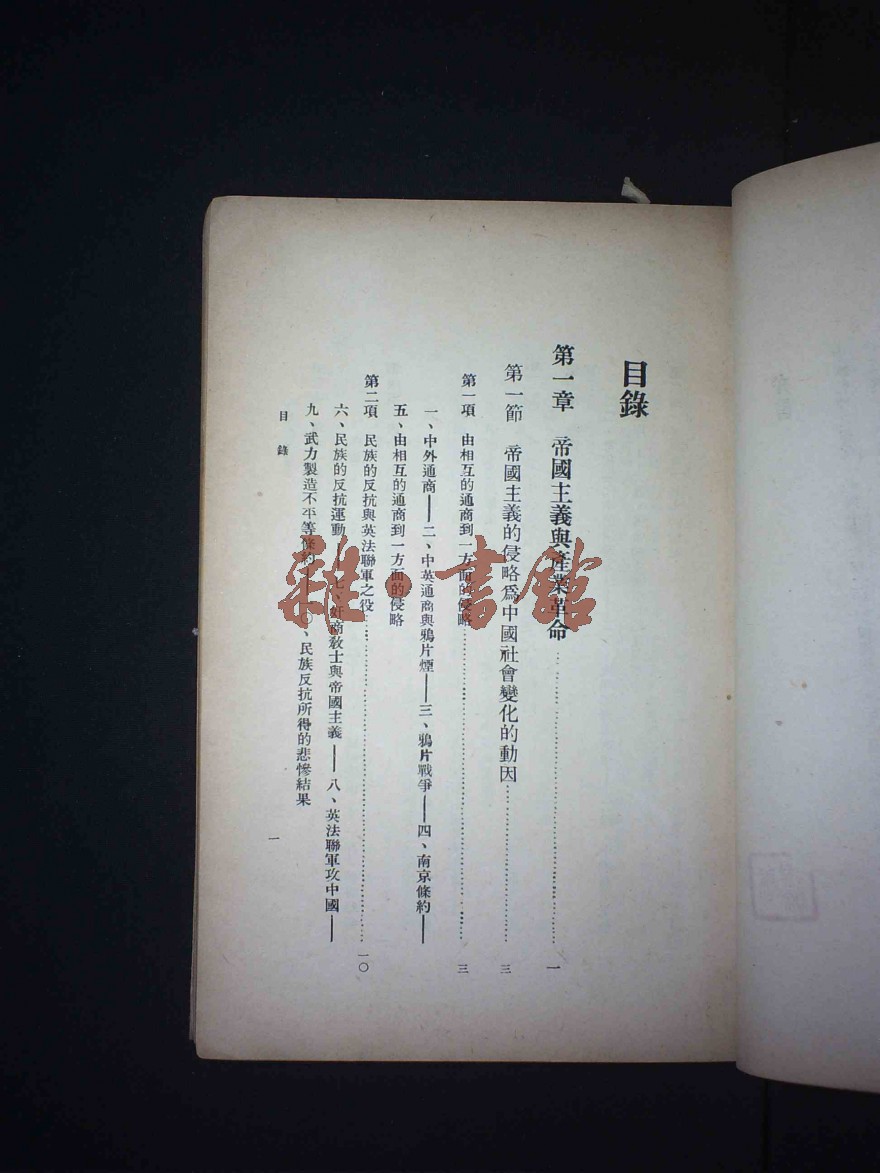 目錄
第一章　帝國主義與產業革命……一
第一節　帝國主義的侵略爲中國社會變化的動因……三
第一項　由相互的通商到一方面的侵略……三
一、中外通商——二、中英通商與鴉片煙——三、鴉片戰爭——四、南京條約——
五、由相互的通商到一方面的侵略
第二項　民族的反抗與英法聯軍之役……一〇
六、民族的反抗運動——七、奸商敎士與帝國主義——八、英法聯軍攻中國——
九、武力製造不平等條約——一〇、民族反抗所得的悲慘結果
目錄
一
雜·書館